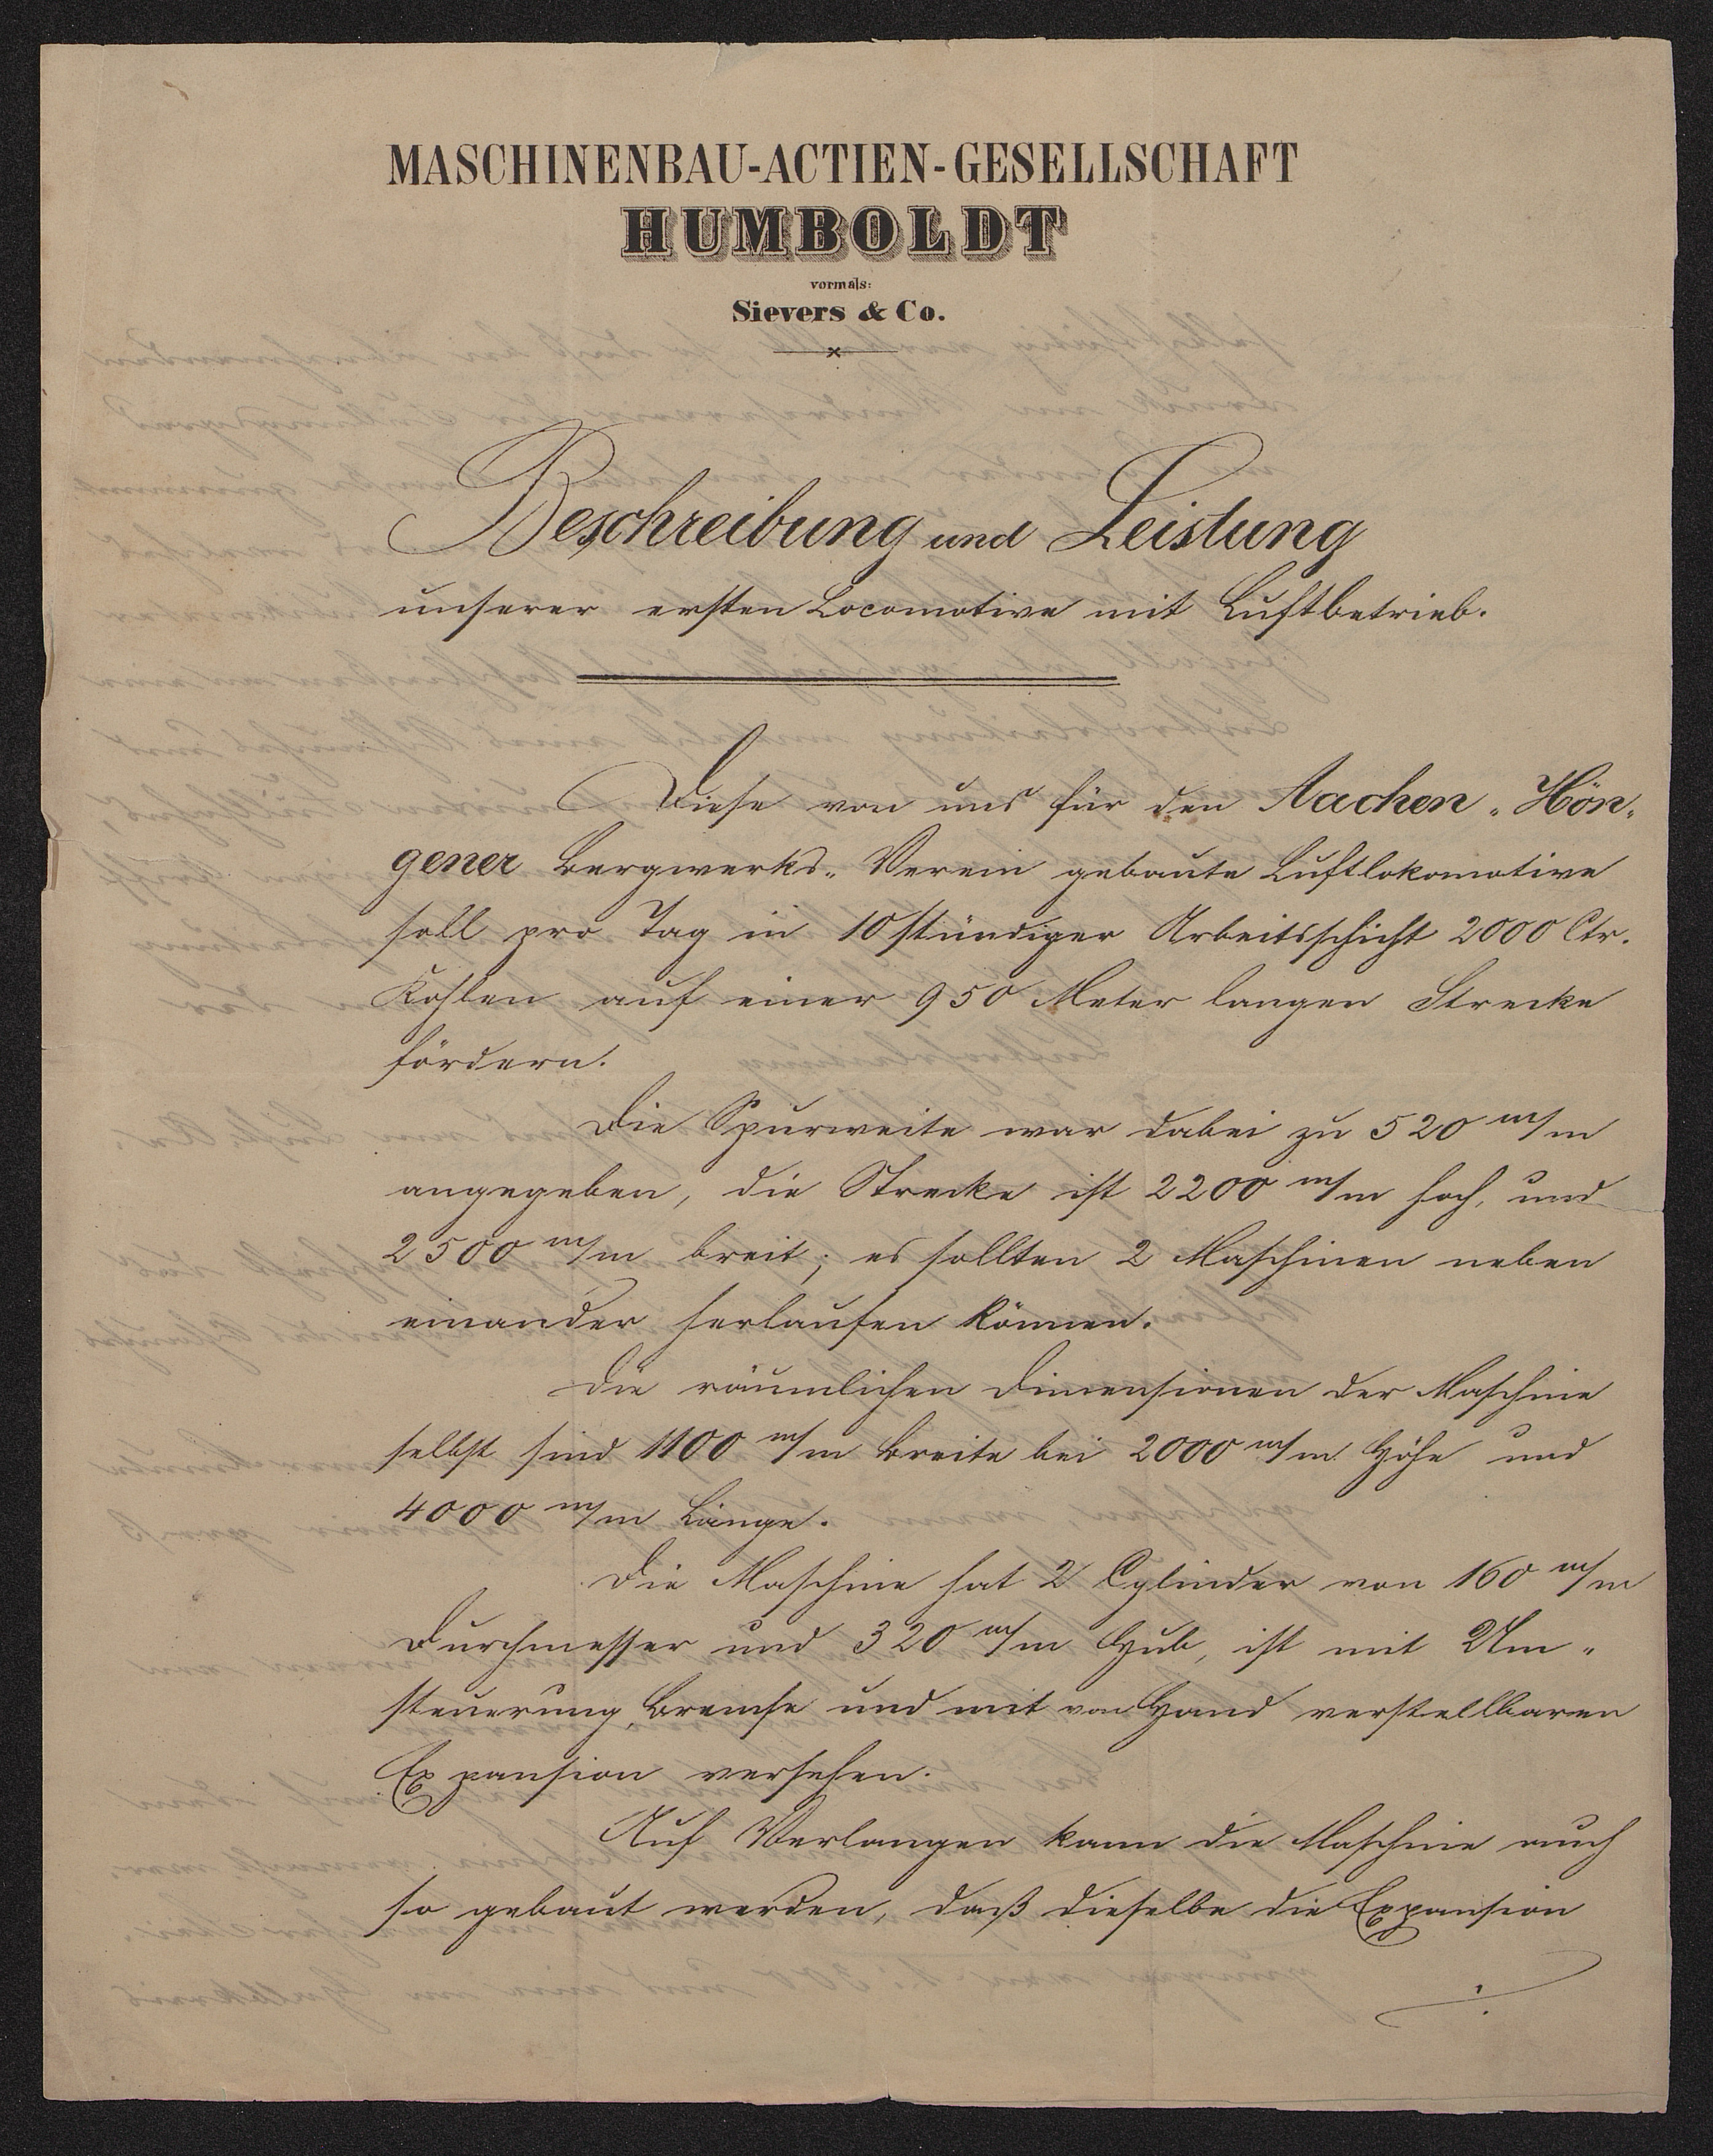 MASCHINENBAU-ACTIEN-GESELLSCHAFT
HUMBOLDT
vormals:
Sievers & Co.
Beschreibung und Leistung
unserer ersten Locomotive mit Luftbetrieb.
Diese von uns für den Aachen-Hön-
gener Bergwerks-Verein gebaute Luftlokomotive
soll pro Tag in 10stündiger Arbeitsschicht 2000 Ctr.
Kohlen auf einer 950 Meter langen Strecke
fördern.
Die Spurweite war dabei zu 520 m/m
angegeben, die Strecke ist 2200 m/m hoch, und
2500 m/m breit; es sollten 2 Maschinen neben
einander herlaufen können.
Die räumlichen Dimensionen der Maschine
selbst sind 1100 m/m Breite bei 2000 m/m Höhe und
4000 m/m Länge.
Die Maschine hat 2 Cylinder von 160 m/m
Durchmesser und 320 m/m Hub, ist mit Um-
steuerung, Bremse und mit von Hand verstellbaren
Expansion versehen.
Auf Verlangen kann die Maschine auch
so gebaut werden, daß dieselbe die Expansion
./.